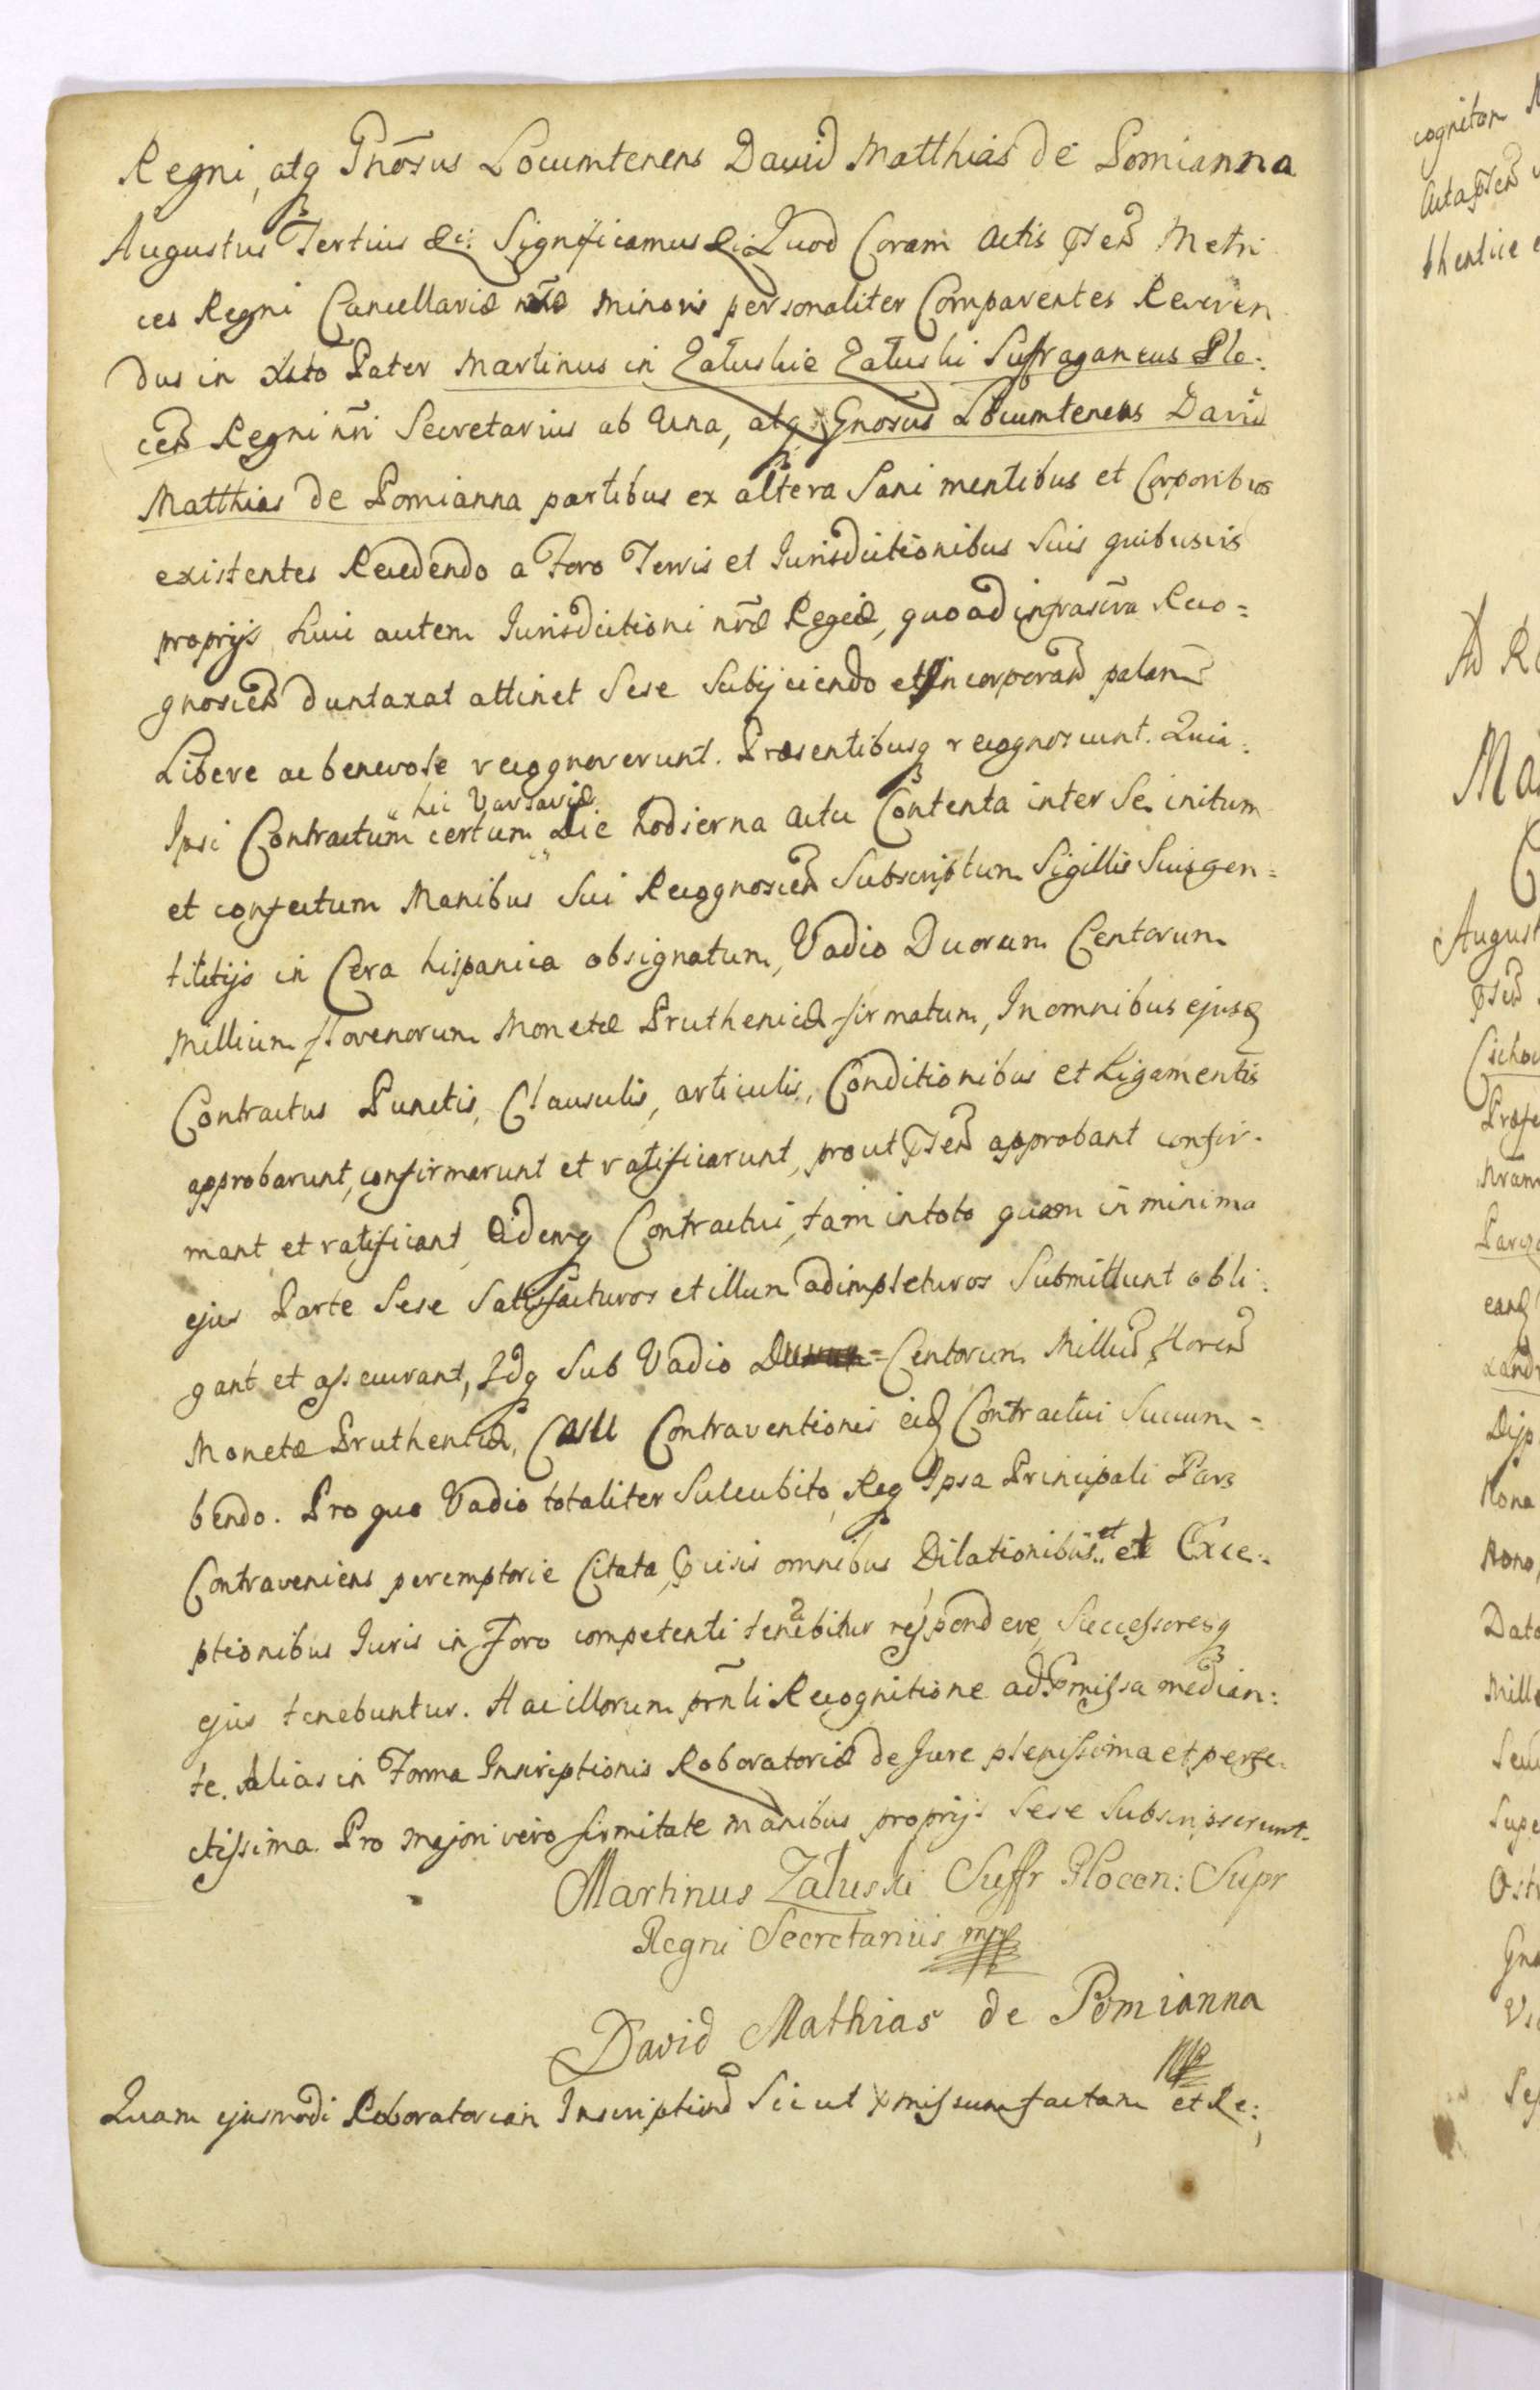 Regni, atq Gnosus Locumtenens David Matthias de Pomianna
Augustus Tertius &c: Significamus &c: Quod Coram Actis Psen Metri
ces Regni Cancellariæ nræ minoris personaliter Comparentes Reveren
dus in Xsto Pater Martinus in Załuskie Załuski Suffraganeus Plo:
cen Regni nri Secretarius ab Una, atq Gnosus Locumtenens David
Matthias de Pomianna partibus ex altera Sani mentibus et Corporibus
existentes Recedendo a Foro Terris et Jurisdictionibus Suis quibusvis
proprijs huic autem Jurisdictioni nræ Regiæ, quo ad infrascra Reco=
gnoscen duntaxat attinet Sese Subijciendo et Incorporan palam
Libere ac benevole recognoverunt. Præsentibusq recognoscunt. Quia:
Ipsi Contractum certum Die hodierna Actu Contenta inter Se initum
hic Varsaviæ
et confectum Manibus Sui Recognoscen Subscriptum Sigillis Suis gen=
tilitijs in Cera hispanica obsignatum, Vadio Duorum Centorum
Millium florenorum Monetæ Pruthenicæ firmatum, In omnibus ejusq
Contractus Punctis, Clausulis, articulis, Conditionibus et Ligamentis
approbarunt, confirmarunt et ratificarunt, prout Psen approbant confir.
mant et ratificant, Eidemq Contractui, tam in toto quam in minima
ejus Parte Sese Satisfacturos et illum adimpleturos Submittunt obli:
gant et assecurant, Idq Sub Vadio = Centorum Milliu Floren
Monetæ Pruthenicæ, Casu Contraventionis eid Contractui Succum=
bendo. Pro quo Vadio totaliter Succubito, Req Ipsa Principali Pars
Contraveniens peremptorie Citata, omnibus Dilationibus et et Exce:
ptionibus Juris in Foro competenti tenebitur respondere, Successoresq
ejus tenebuntur. Hac illorum prnli Recognitione ad Pmissa median:
te. Alias in Forma Inscriptionis Roboratoriæ de Jure plenissima et perfe.
ctissima. Pro majori vero firmitate manibus proprijs Sese Subscripserunt.
Martinus Załuski Suffr Plocen: Supr
Regni Secretarius mpp
David Mathias de Pomianna
mp
Quam ejusmodi Roboratoriam Inscription Sicut Pmissum factam et Re:
cognitam
Acta Psen
thentice
Ad
Ma
August
Psen
Cichov
Præfe
Nram
ean
xandr
Disp
Nona
Nono,
Dato
Mill
Seu
Supe
Ost
Gno